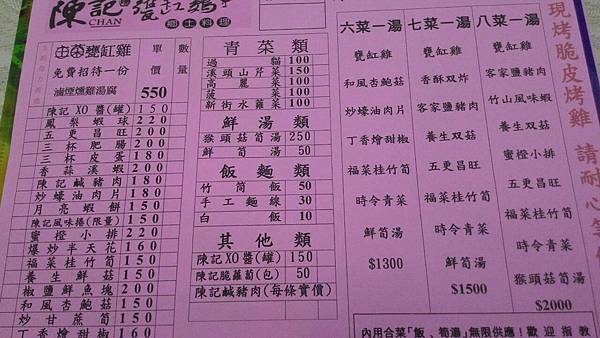 陳記甕缸雞
CHAN
鄉土料理
甕缸雞 單價 數量
免費招待一份
滷煙燻雞湯腐 550
陳記XO醬(罐) 150
鳳梨蝦球 220
五更昌旺 200
三杯肥腸 200
三杯皮蛋 180
香蒜溪蝦 200
陳記鹹豬肉 180
炒蠔油肉片 180
月亮蝦餅 150
陳記風味捲(限量) 150
蜜橙小排 220
爆炒半天花 160
福菜桂竹筍 150
養生鮮菇 150
椒鹽鮮魚塊 200
和風杏鮑菇 150
炒甘蔗筍 150
丁香燴甜椒 160
青菜類
過貓 100
溪頭山芹菜 150
高麗菜 100
菠菜 100
新街水蓮菜 100
鮮湯類
猴頭菇筍湯 250
鮮筍湯 50
飯麵類
竹筒飯 50
手工麵線 30
白飯 10
其他類
陳記XO醬(罐) 150
陳記脆蘿蔔(包) 50
陳記鹹豬肉(每條實價)
六菜一湯
甕缸雞
和風杏鮑菇
炒蠔油肉片
丁香燴甜椒
福菜桂竹筍
時令青菜
鮮筍湯
$1300
七菜一湯
甕缸雞
香酥双炸
客家鹽豬肉
養生双菇
五更昌旺
福菜桂竹筍
時令青菜
鮮筍湯
$1500
八菜一湯
甕缸雞
客家鹽豬肉
竹山風味蝦
養生双菇
蜜橙小排
五更昌旺
福菜桂竹筍
時令青菜
猴頭菇筍湯
$2000
現烤脆皮烤雞 請耐心等
內用合菜「飯、筍湯」無限供應！歡迎指教